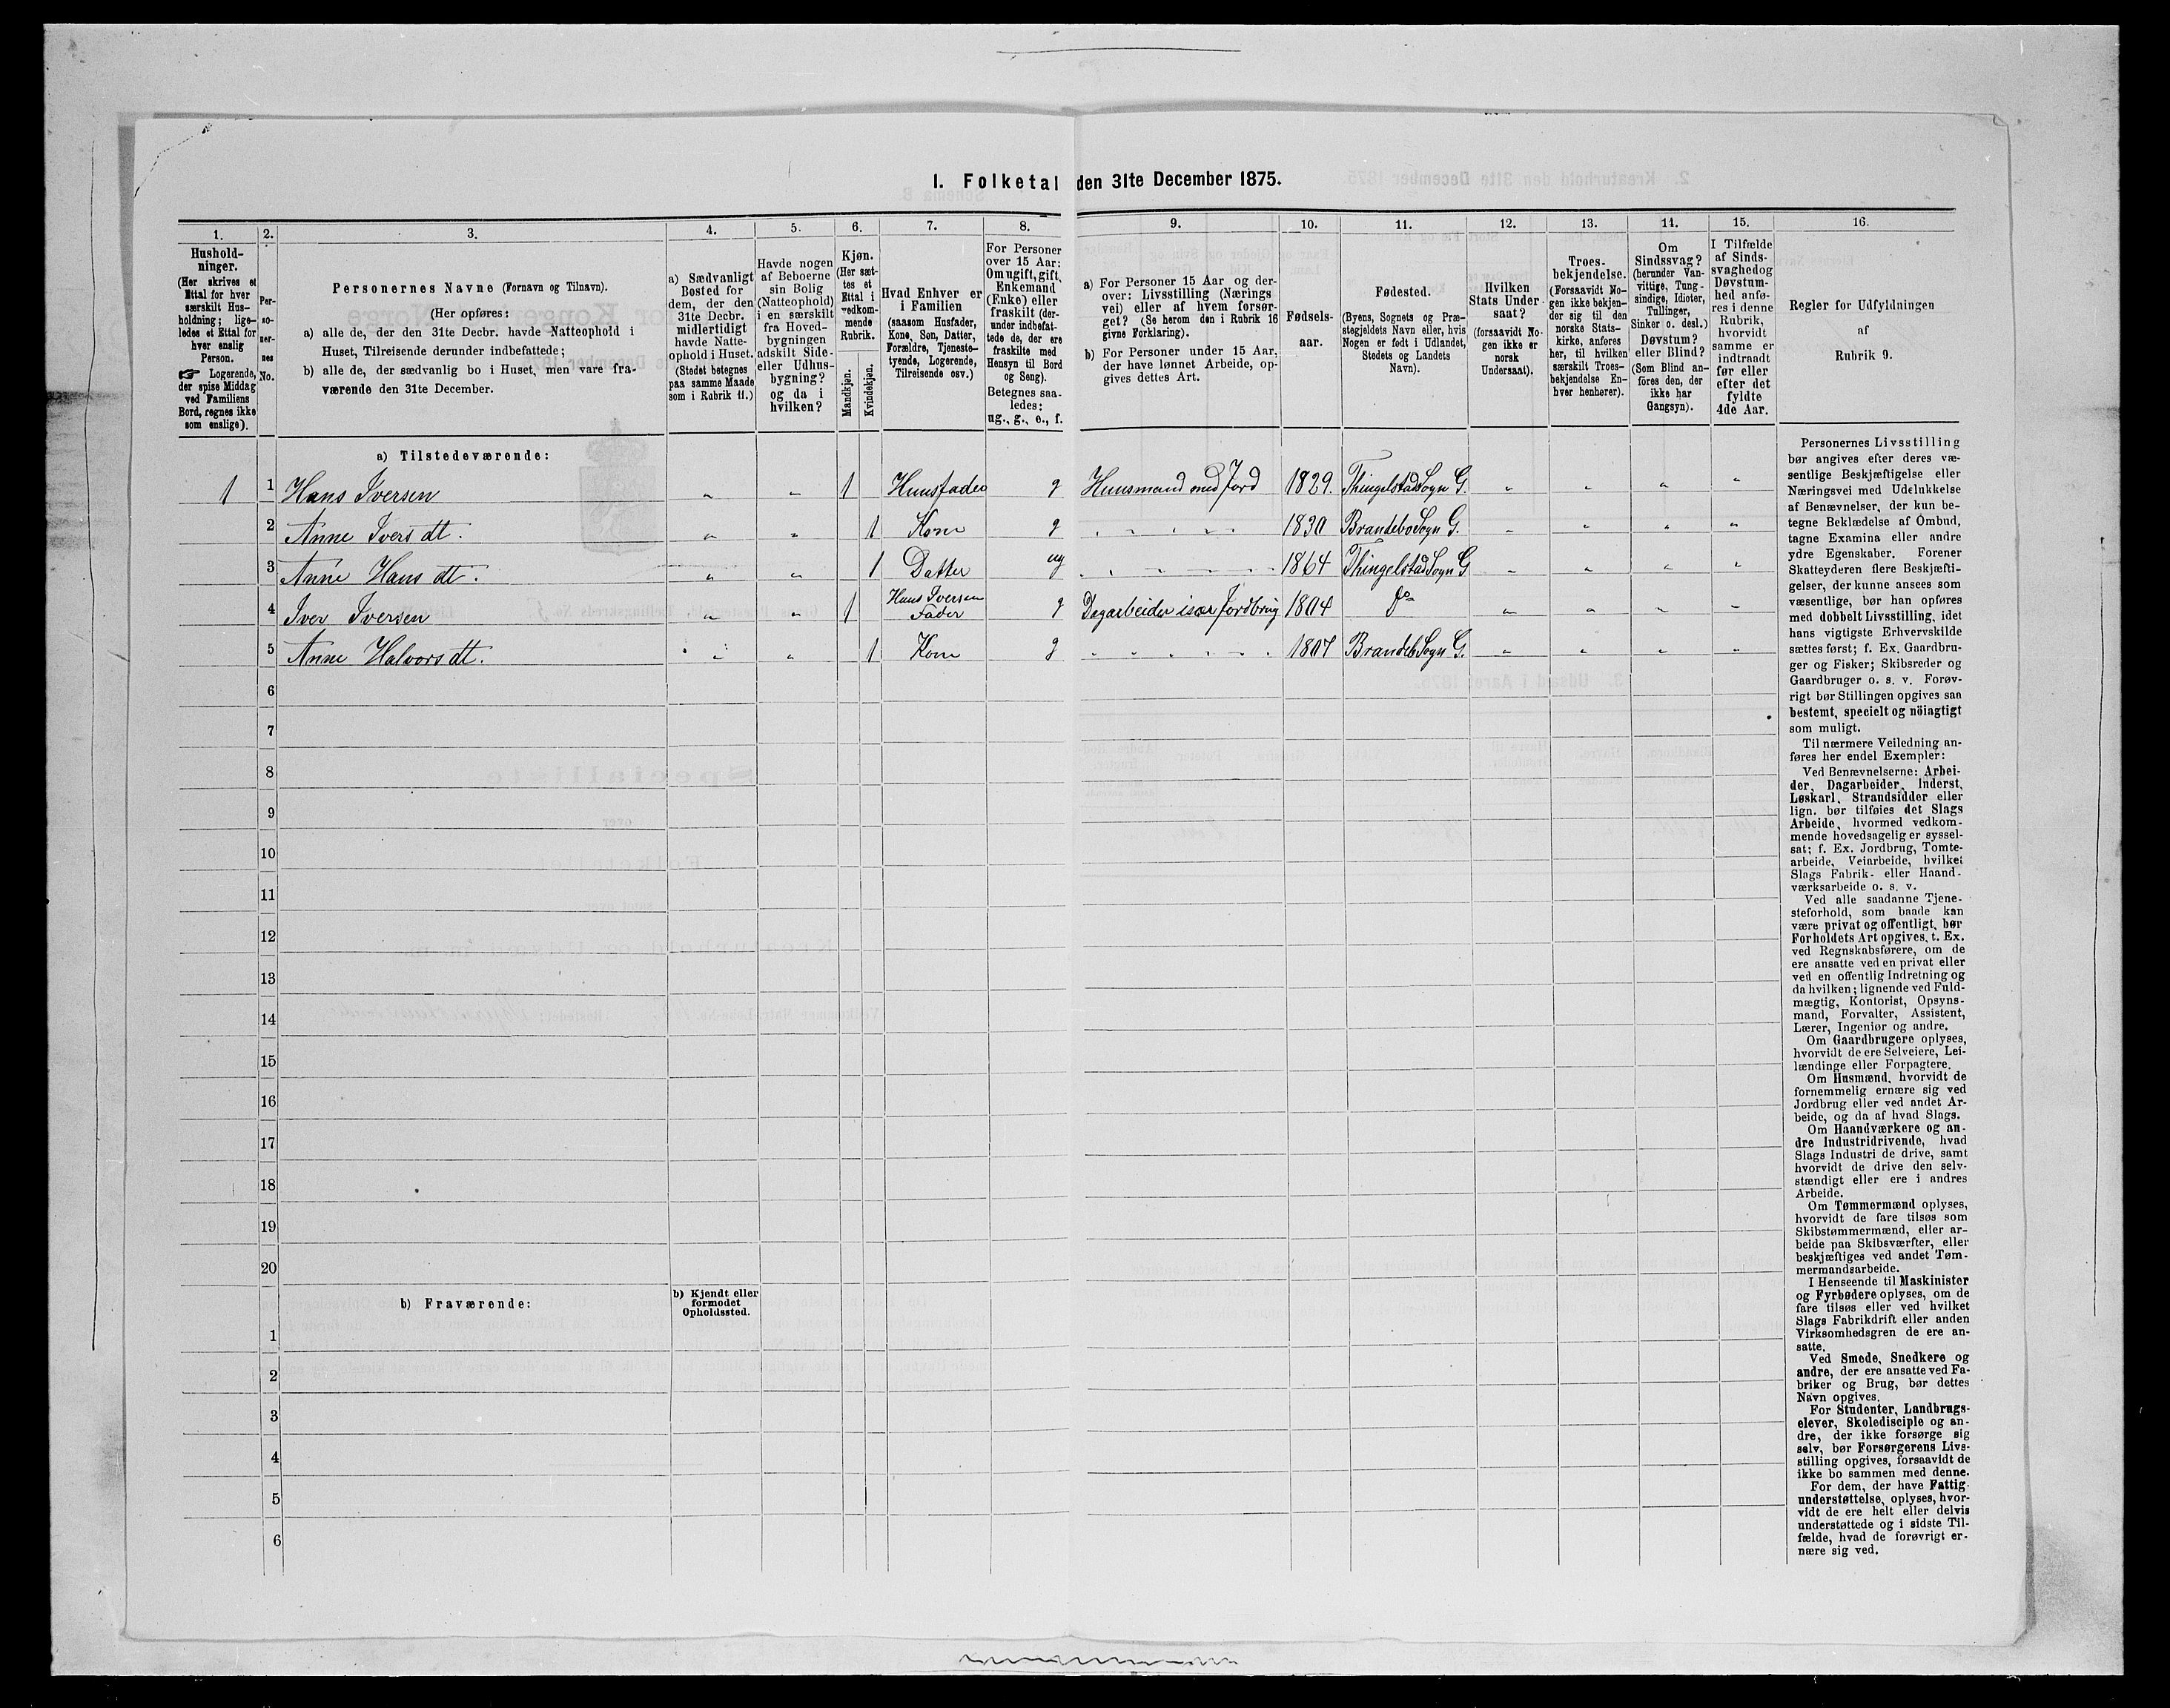 I. Folketal den 31te December 1875.
1. 2. 3. 4. 5. 6. 7. 8. 9. 10. 11. 12. 13. 14. 15. 16.
Hushold-
ninger.
(Her skrives et
Ettal for hver
særskilt Hus-
holdning; lige-
ledes et Ettal for
hver enslig
Person.
☞ Logerende,
der spise Middag
ved Familiens
Bord, regnes ikke
som enslige).
Per-
so-
ner-
nes
No.
Personernes Navne (Fornavn og Tilnavn).
(Her opføres:
a) alle de, der den 31te Decbr. havde Natteophold i
Huset, Tilreisende derunder indbefattede;
b) alle de, der sædvanlig bo i Huset, men vare fra-
værende den 31te December.
a) Sædvanligt
Bosted for
dem, der den
31te Decbr.
midlertidigt
havde Natte-
ophold i Huset.
(Stedet betegnes
paa samme Maade
som i Rubrik 11.)
Havde nogen
af Beboerne
sin Bolig
(Natteophold)
i en særskilt
fra Hoved-
bygningen
adskilt Side-
eller Udhus-
bygning?
og da i
hvilken?
Kjøn.
(Her sæt-
tes et
Ettal i
vedkom-
mende
Rubrik.
Mandkjøn.
Kvindekjøn.
Hvad Enhver er
i Familien
(saasom Husfader,
Kone, Søn, Datter,
Forældre, Tjeneste-
tyende, Logerende,
Tilreisende osv.)
For Personer
over 15 Aar:
Om ugift, gift,
Enkemand
(Enke) eller
fraskilt (der-
under indbefat-
tede de, der ere
fraskilte med
Hensyn til Bord
og Seng).
Betegnes saa-
ledes:
ug., g., e., f.
a) For Personer 15 Aar og der-
over: Livsstilling (Nærings-
vei) eller af hvem forsør-
get? (Se herom den i Rubrik 16
givne Forklaring).
b) For Personer under 15 Aar,
der have lønnet Arbeide, op-
gives dettes Art.
Fødsels-
aar.
Fødested.
(Byens, Sognets og Præ-
stegjeldets Navn eller, hvis
Nogen er født i Udlandet,
Stedets og Landets
Navn).
Hvilken
Stats Under-
saat?
(forsaavidt No-
gen ikke er
norsk
Undersaat).
Troes-
bekjendelse.
(Forsaavidt No-
gen ikke bekjen-
der sig til den
norske Stats-
kirke, anføres
her, til hvilken
særskilt Troes-
bekjendelse En-
hver henhører).
Om
Sindssvag?
(herunder Van-
vittige, Tung-
sindige, Idioter,
Tullinger,
Sinker o. desl.)
Døvstum?
eller Blind?
(Som Blind an-
føres den, der
ikke har
Gangsyn).
I Tilfælde
af Sinds-
svaghed og
Døvstum-
hed anfø-
res i denne
Rubrik,
hvorvidt
samme er
indtraadt
før eller
efter det
fyldte
4de Aar.
Regler for Udfyldningen
af
Rubrik 9.
a) Tilstedeværende:
1 1 Hans Iversen " " 1 Huusfader g Huusmand med Jord 1829. Thingelstad Sogn G. " " " "
2 Anne Ivers dt. " " 1 Kone g " " " " " 1830 Brandebo Sogn G. " " " "
3 Anne Hans dt. " " 1 Datter ug " " " " " 1864 Thingelstad Sogn G " " " "
4 Iver Iversen " " 1 Hans Iversen Fader g Dagarbeider især Jordbrug 1804 Do " " " "
5 Anne Halvors dt. " " 1 Kone g " " " " " 1807 Brandeb Sogn G. " " " "
6
7
8
9
10
11
12
13
14
15
16
17
18
19
20
b) Fraværende:
b) Kjendt eller
formodet
Opholdssted.
1
2
3
4
5
6
Personernes Livsstilling
bør angives efter deres væ-
sentlige Beskjæftigelse eller
Næringsvei med Udelukkelse
af Benævnelser, der kun be-
tegne Beklædelse af Ombud,
tagne Examina eller andre
ydre Egenskaber. Forener
Skatteyderen flere Beskjæfti-
gelser, der kunne ansees som
væsentlige, bør han opføres
med dobbelt Livsstilling, idet
hans vigtigste Erhvervskilde
sættes først; f. Ex. Gaardbru-
ger og Fisker; Skibsreder og
Gaardbruger o. s. v. Forøv-
rigt bør Stillingen opgives saa
bestemt, specielt og nöiagtigt
som muligt.
Til nærmere Veiledning an-
føres her endel Exempler:
Ved Benævnelserne: Arbei-
der, Dagarbeider, Inderst,
Løskarl, Strandsidder eller
lign. bør tilføies det Slags
Arbeide, hvormed vedkom-
mende hovedsagelig er syssel-
sat; f. Ex. Jordbrug, Tomte-
arbeide, Veiarbeide, hvilket
Slags Fabrik- eller Haand-
værksarbeide o. s. v.
Ved alle saadanne Tjene-
steforhold, som baade kan
være privat og offentligt, bør
Forholdets Art opgives, t. Ex.
ved Regnskabsførere, om de
ere ansatte ved en privat eller
ved en offentlig Indretning og
da hvilken; lignende ved Fuld-
mægtig, Kontorist, Opsyns-
mand, Forvalter, Assistent,
Lærer, Ingeniør og andre.
Om Gaardbrugere oplyses,
hvorvidt de ere Selveiere, Lei-
lændinge eller Forpagtere.
Om Husmænd, hvorvidt de
fornemmelig ernære sig ved
Jordbrug eller ved andet Ar-
beide, og da af hvad Slags.
Om Haandværkere og an-
dre Industridrivende, hvad
Slags Industri de drive, samt
hvorvidt de drive den selv-
stændigt eller ere i andres
Arbeide.
Om Tømmermænd oplyses,
hvorvidt de fare tilsøs som
Skibstømmermænd, eller ar-
beide paa Skibsværfter, eller
beskjæftiges ved andet Tøm-
mermandsarbeide.
I Henseende til Maskinister
og Fyrbødere oplyses, om de
fare tilsøs eller ved hvilket
Slags Fabrikdrift eller anden
Virksomhedsgren de ere an-
satte.
Ved Smede, Snedkere og
andre, der ere ansatte ved Fa-
briker og Brug, bør dettes
Navn opgives.
For Studenter, Landbrugs-
elever, Skoledisciple og an-
dre, der ikke forsørge sig
selv, bør Forsørgerens Livs-
stilling opgives, forsaavidt de
ikke bo sammen med denne.
For dem, der have Fattig-
understøttelse, oplyses, hvor-
vidt de ere helt eller delvis
understøttede og i sidste Til-
fælde, hvad de forøvrigt er-
nære sig ved.